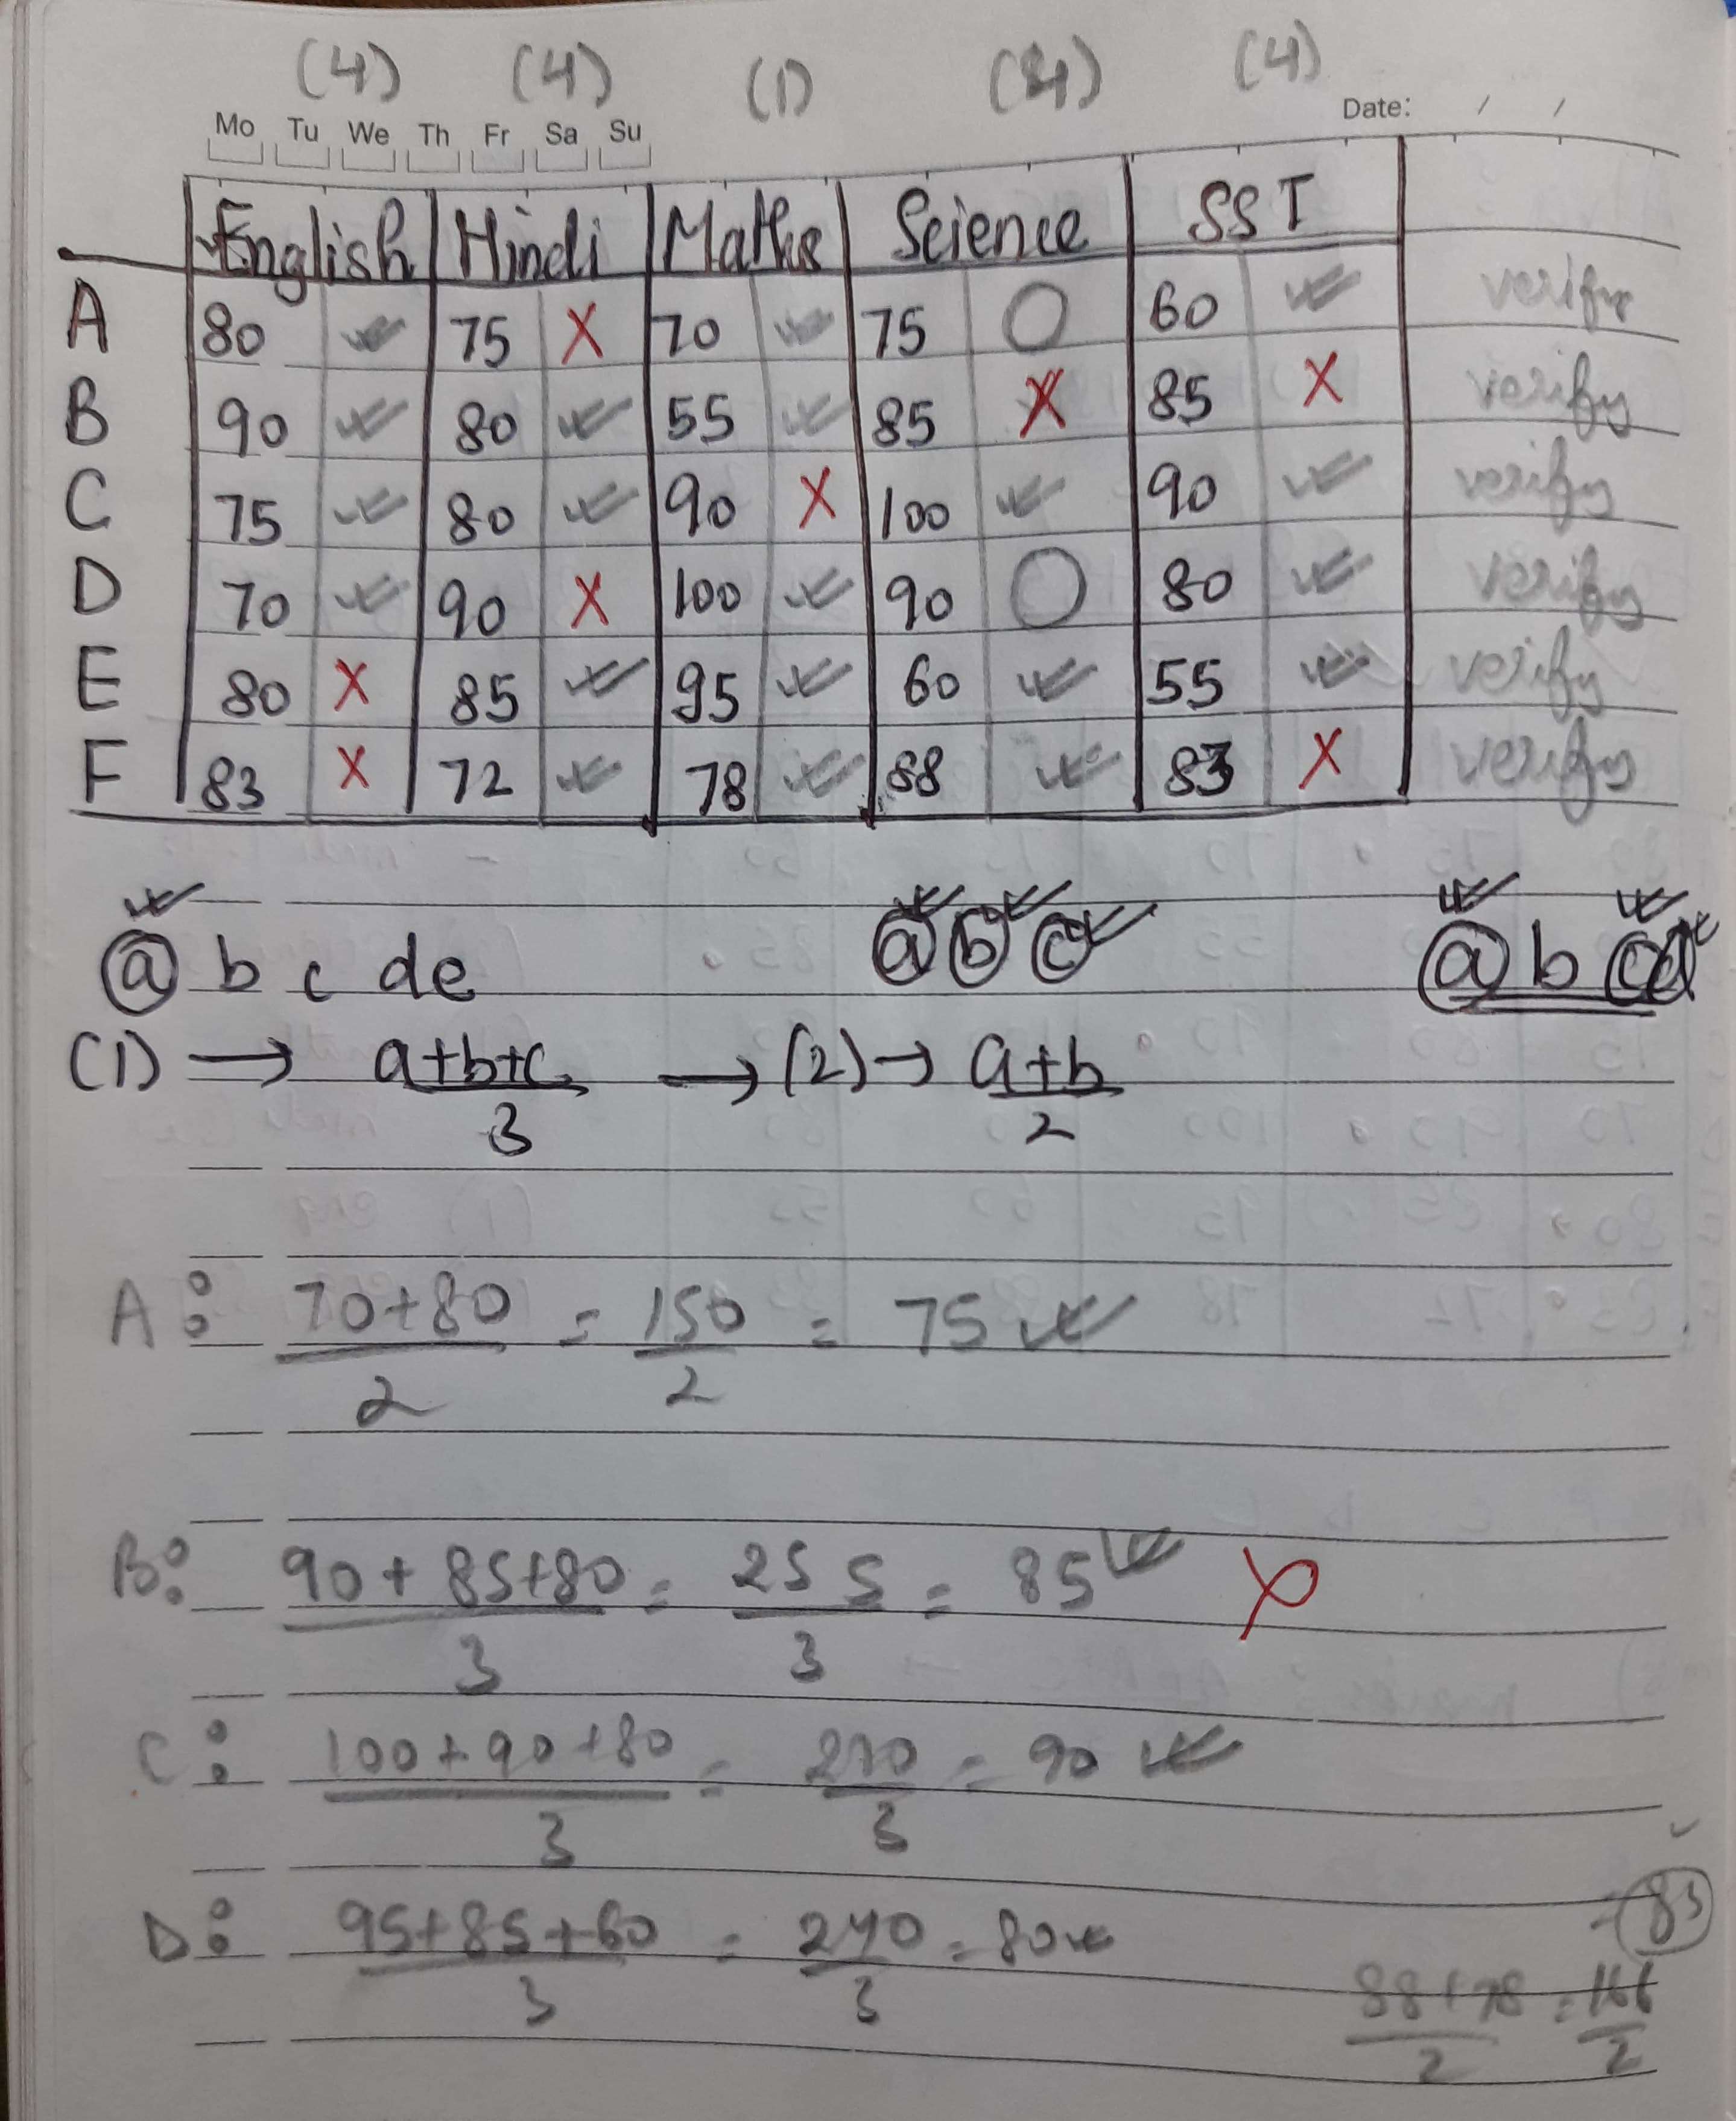 (4) (4) (1) (4) (4)
Mo Tu We Th Fr Sa Su Date: / /
English Hindi Maths Science SST
A 80 75 X 70 75 60 verify
B 90 80 55 85 X 85 X verify
C 75 80 90 X 100 90 verify
D 70 90 X 100 90 80 verify
E 80 X 85 95 60 55 verify
F 83 X 72 78 88 83 X verify
a b c d e a b c a b c d
(1) → a+b+c/3 → (2) → a+b/2
A: 70+80/2 = 150/2 = 75
B: 90+85+80/3 = 255/3 = 85
C: 100+90+80/3 = 270/3 = 90
D: 95+85+60/3 = 240/3 = 80
88+78/2 = 166/2 = 83